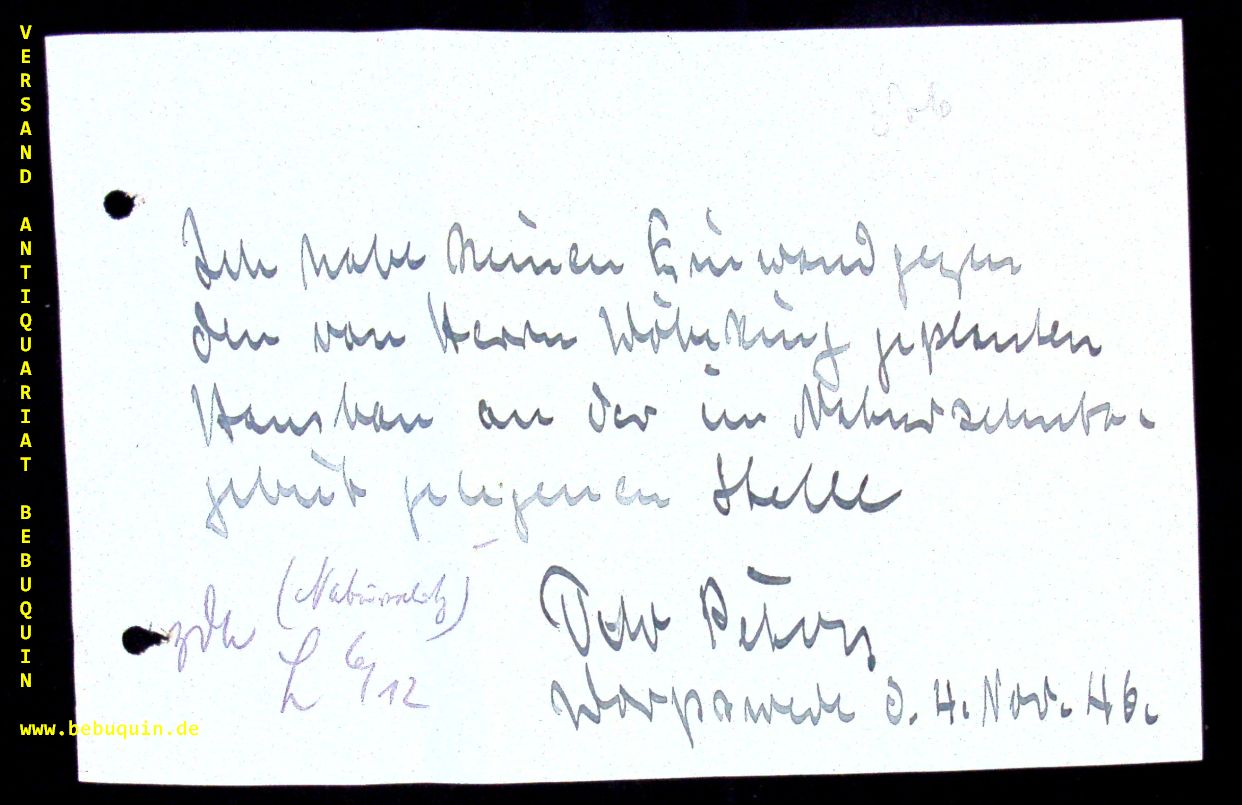 VERSAND ANTIQUARIAT BEBUQUIN
Ich habe keinen Einwand gegen
den von Herrn Wöhlking geplanten
Hausbau an der im Naturschutz-
gebiet gelegenen Stelle
(Naturschutz)
zdA
6/12
Otto Peters
Worpswede d. 4. Nov. 46.
www.bebuquin.de